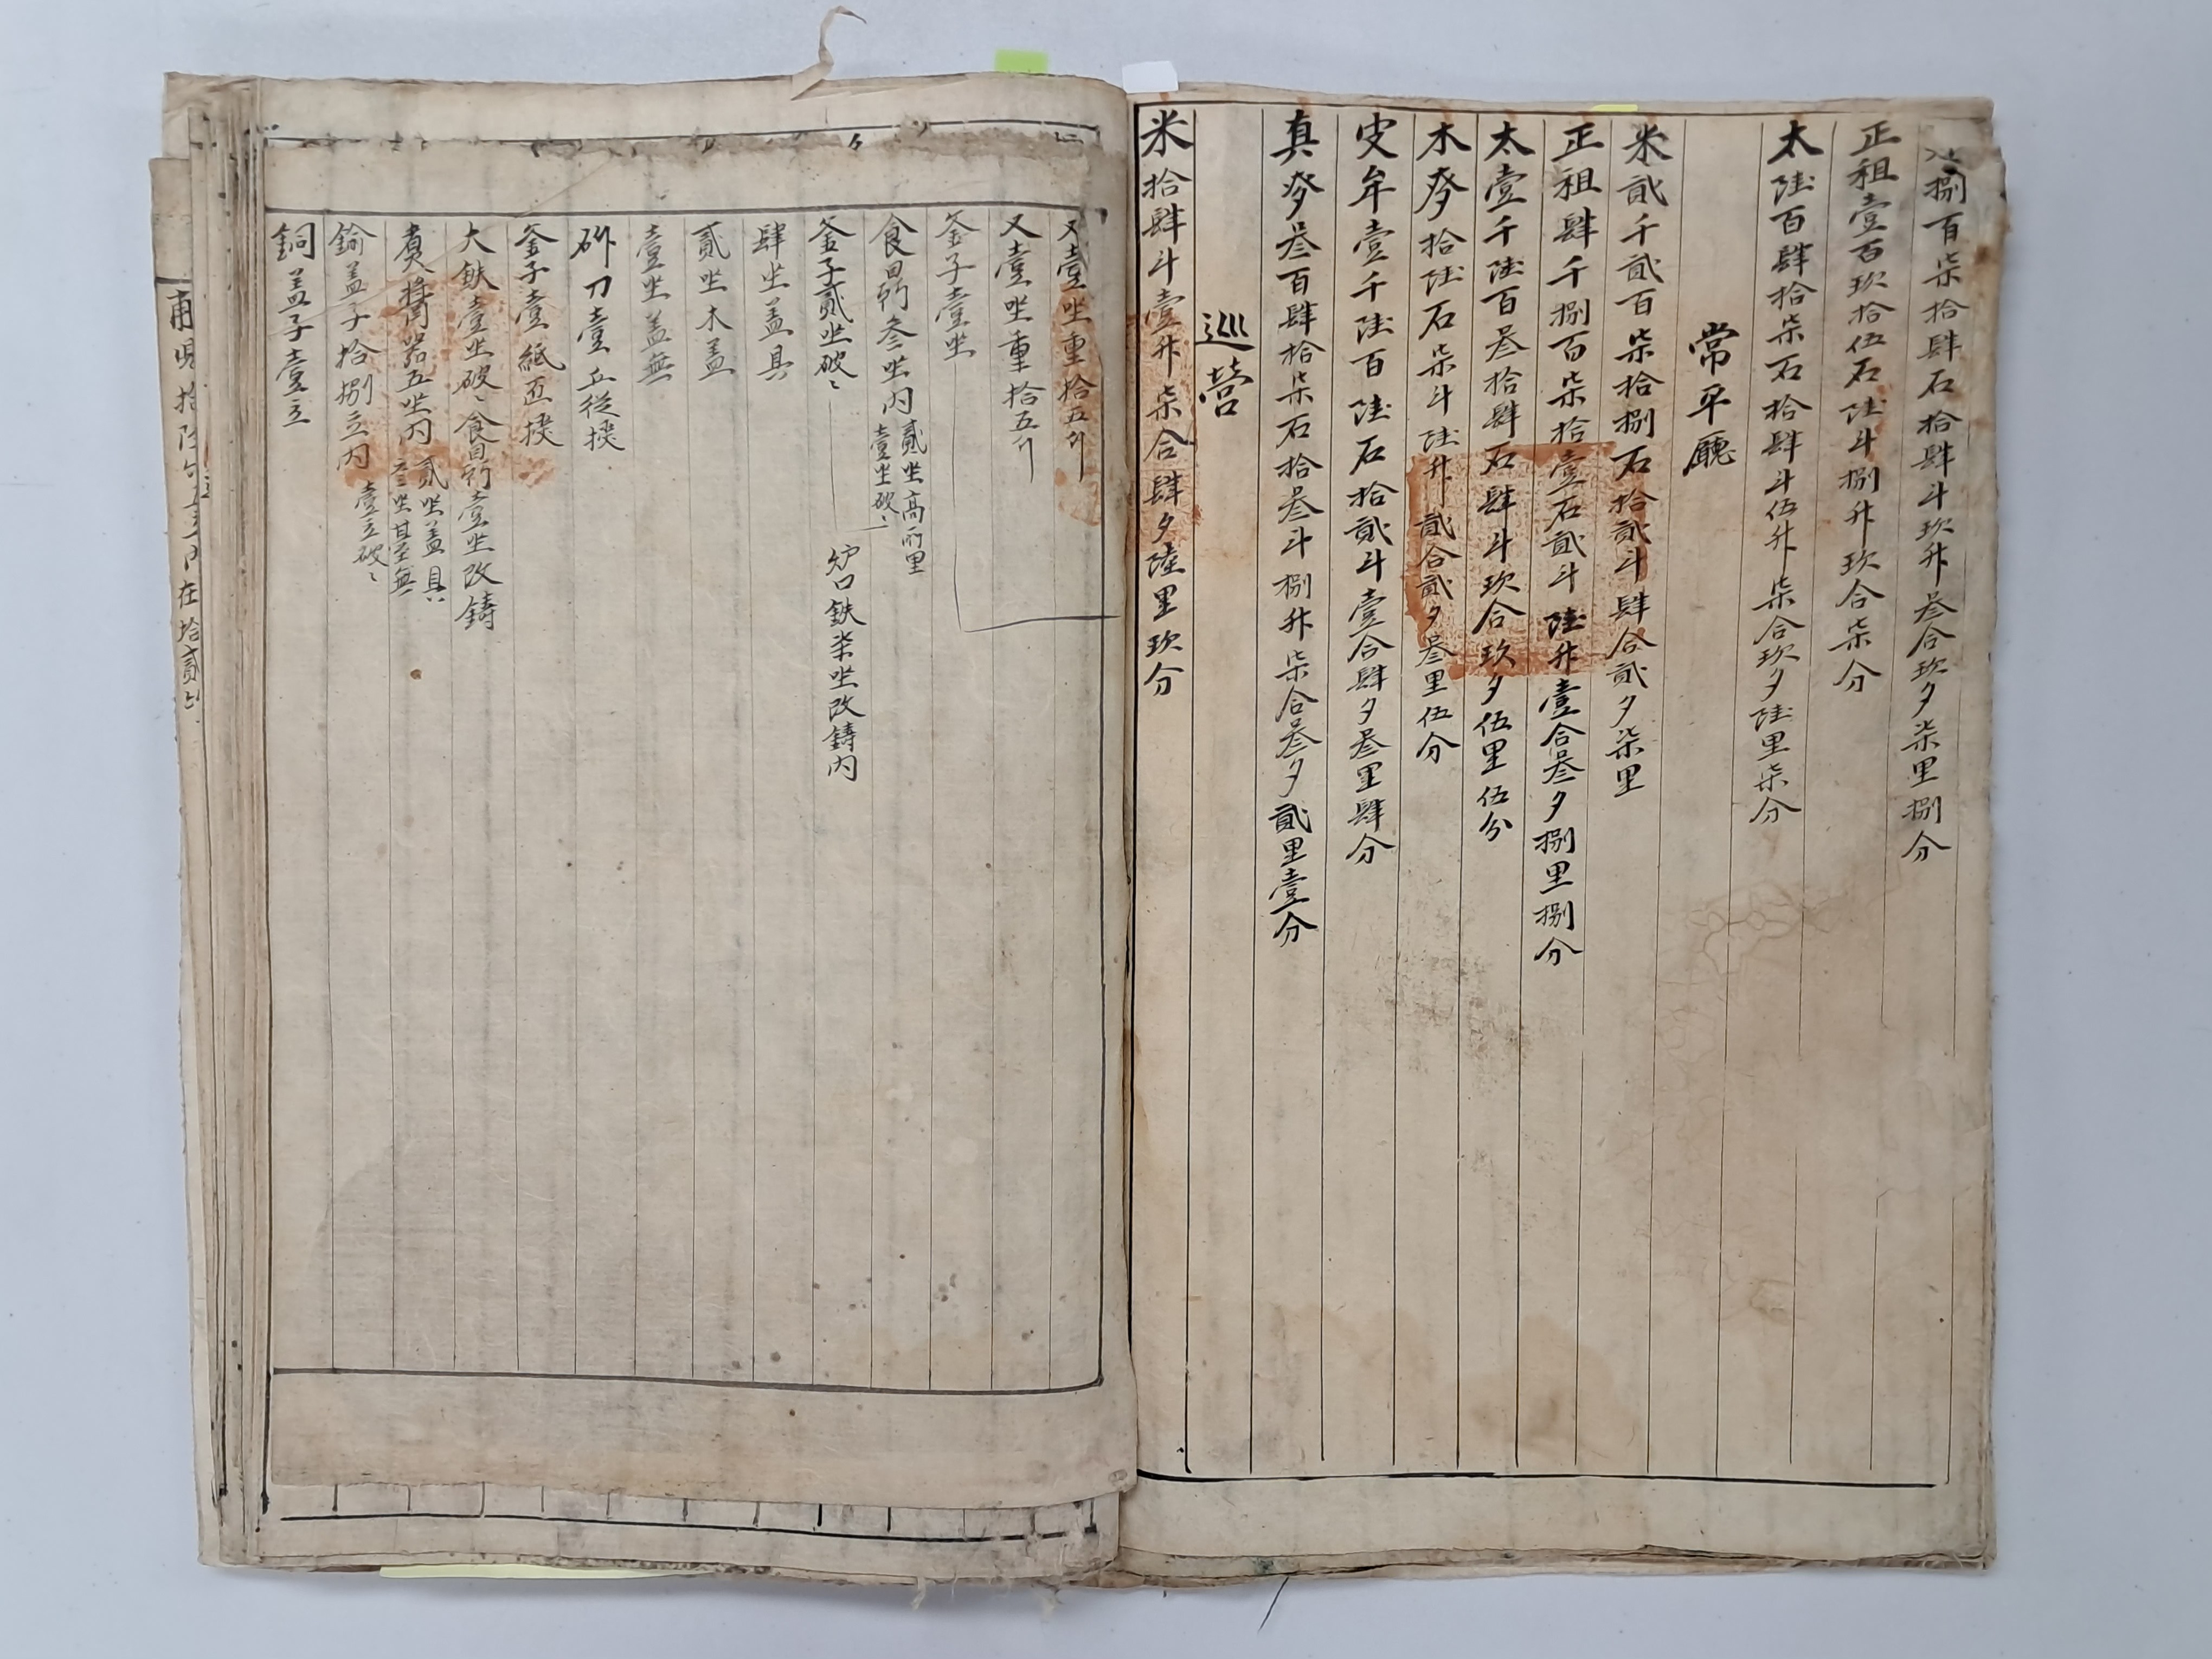 捌百柒拾肆石拾肆斗玖升叁合玖夕柒里捌分
正租壹百玖拾伍石陸斗捌升玖合柒分
太陸百肆拾柒石拾肆斗伍升柒合玖夕陸里柒分
常平廳
米貳千貳百柒拾捌石拾貳斗肆合貳夕柒里
正租肆千捌百柒拾壹石貳斗陸升壹合叁夕捌里捌分
太壹千陸百叁拾肆石肆斗玖合玖夕伍里伍分
木麥拾陸石柒斗陸升貳合貳夕叁里伍分
皮牟壹千陸百陸石拾貳斗壹合肆夕叁里肆分
真麥叁百肆拾柒石拾叁斗捌升柒合叁夕貳里壹分
巡營
米拾肆斗壹升柒合肆夕陸里玖分
又壹坐重拾五斤
又壹坐重拾五斤
釜子壹坐
食鼎叁坐內
貳坐高所里
壹坐破〻
釜子貳坐破〻
炉口鉄柒坐改鑄內
肆坐盖具
貳坐木盖
壹坐盖無
斫刀壹丘從揆
釜子壹紙匠揆
大鉄壹坐破〻食鼎壹坐改鑄
煑醬器五坐內
貳坐盖具
叁坐甚無
鍮盖子拾捌立內
壹立破〻
銅盖子壹立
在拾貳